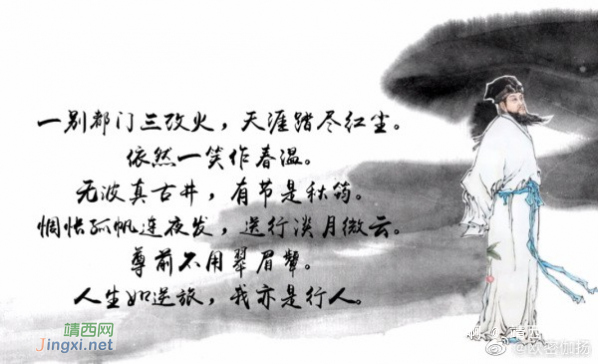 一别都门三改火，天涯踏尽红尘。
依然一笑作春温。
无波真古井，有节是秋筠。
惆怅孤帆连夜发，送行淡月微云。
尊前不用翠眉颦。
人生如逆旅，我亦是行人。
靖西网
Jingxi.net